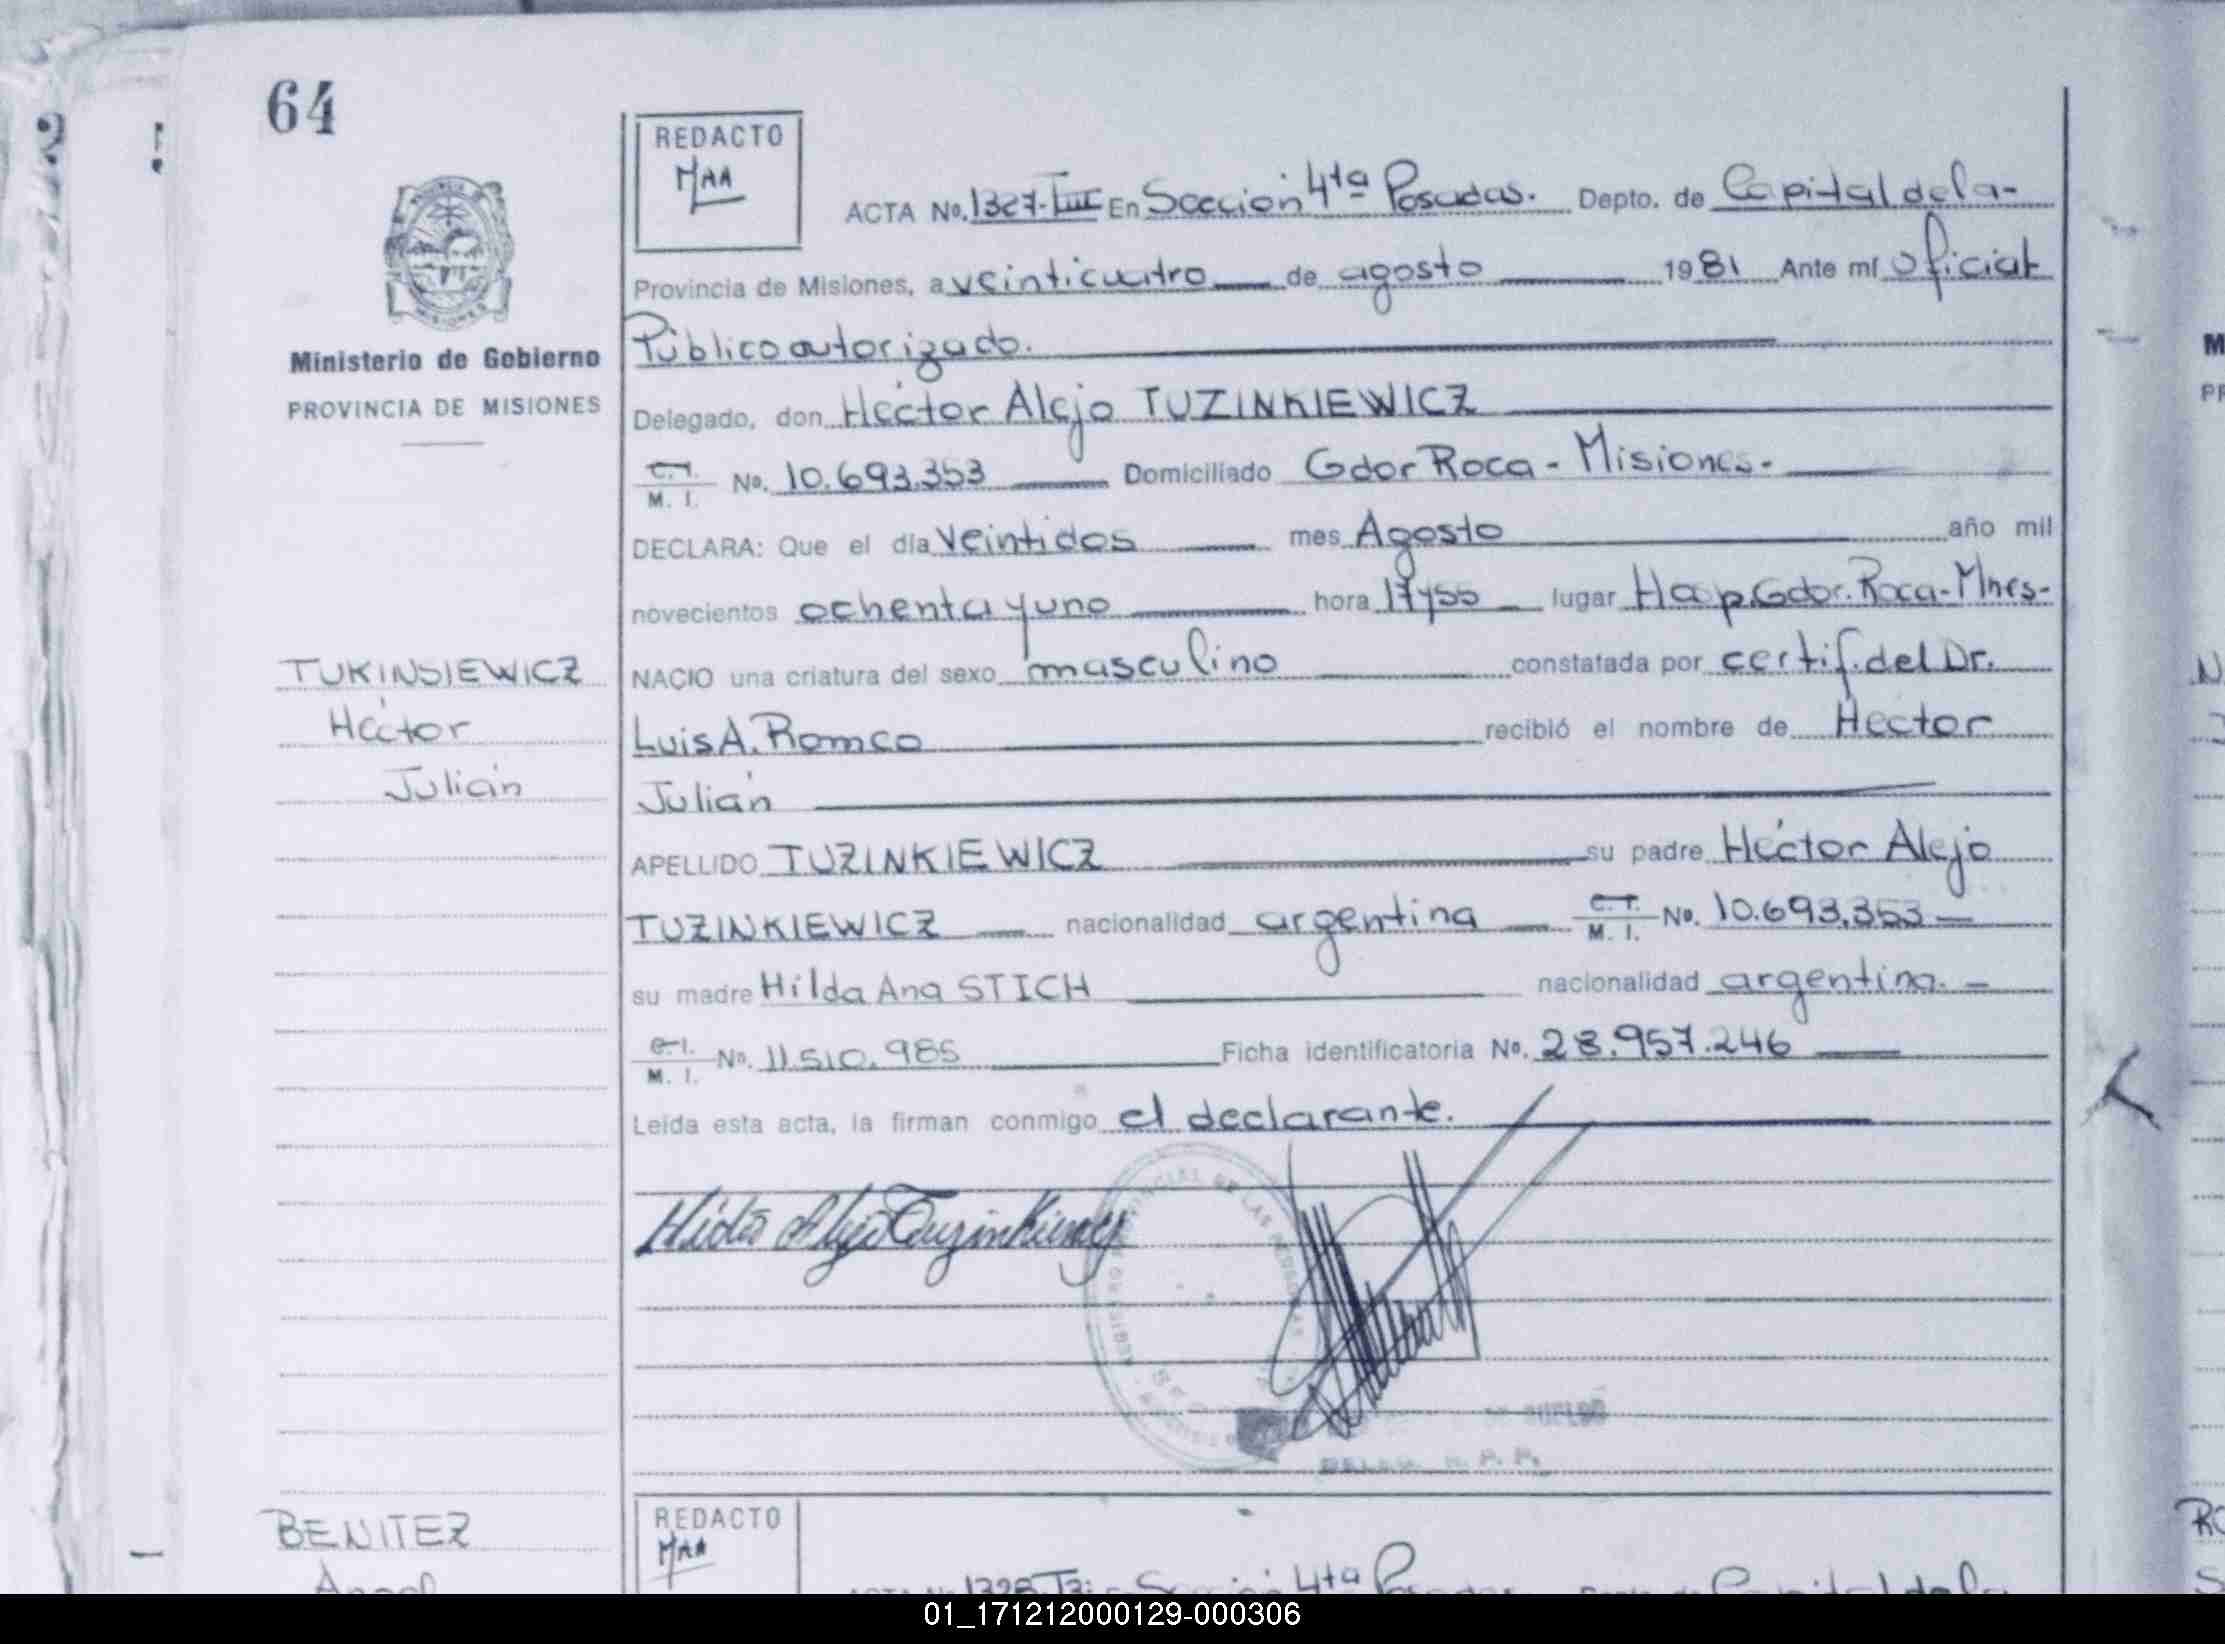 64
REDACTO
MAA
ACTA No. 1327-TIII En Sección 4ta Posadas. Depto. de Capital de la-
Provincia de Misiones, a veinticuatro de agosto 1981 Ante mí Oficial
Público autorizado.
Ministerio de Gobierno
PROVINCIA DE MISIONES
Delegado, don Héctor Alejo TUZINKIEWICZ
C.I. M. I. No. 10.693.353 Domiciliado Gdor Roca - Misiones.-
DECLARA: Que el día Veintidos mes Agosto año mil
novecientos ochenta y uno hora 17y55 lugar Hosp. Gdor. Roca-Mnes-
TUKINSIEWICZ
Héctor
Julián
NACIO una criatura del sexo masculino constatada por certif. del Dr.
Luis A. Romeo recibió el nombre de Héctor
Julián
APELLIDO TUZINKIEWICZ su padre Héctor Alejo
TUZINKIEWICZ nacionalidad argentina C.I. M. I. No. 10.693.353
su madre Hilda Ana STICH nacionalidad argentina.-
C.I. M. I. No. 11.510.985 Ficha identificatoria No. 28.957.246
Leída esta acta, la firman conmigo el declarante.
DELEG. R. P. P.
BENITEZ
Angel
REDACTO
MAA
Sección 4ta Posadas Capital de la
01_171212000129-000306